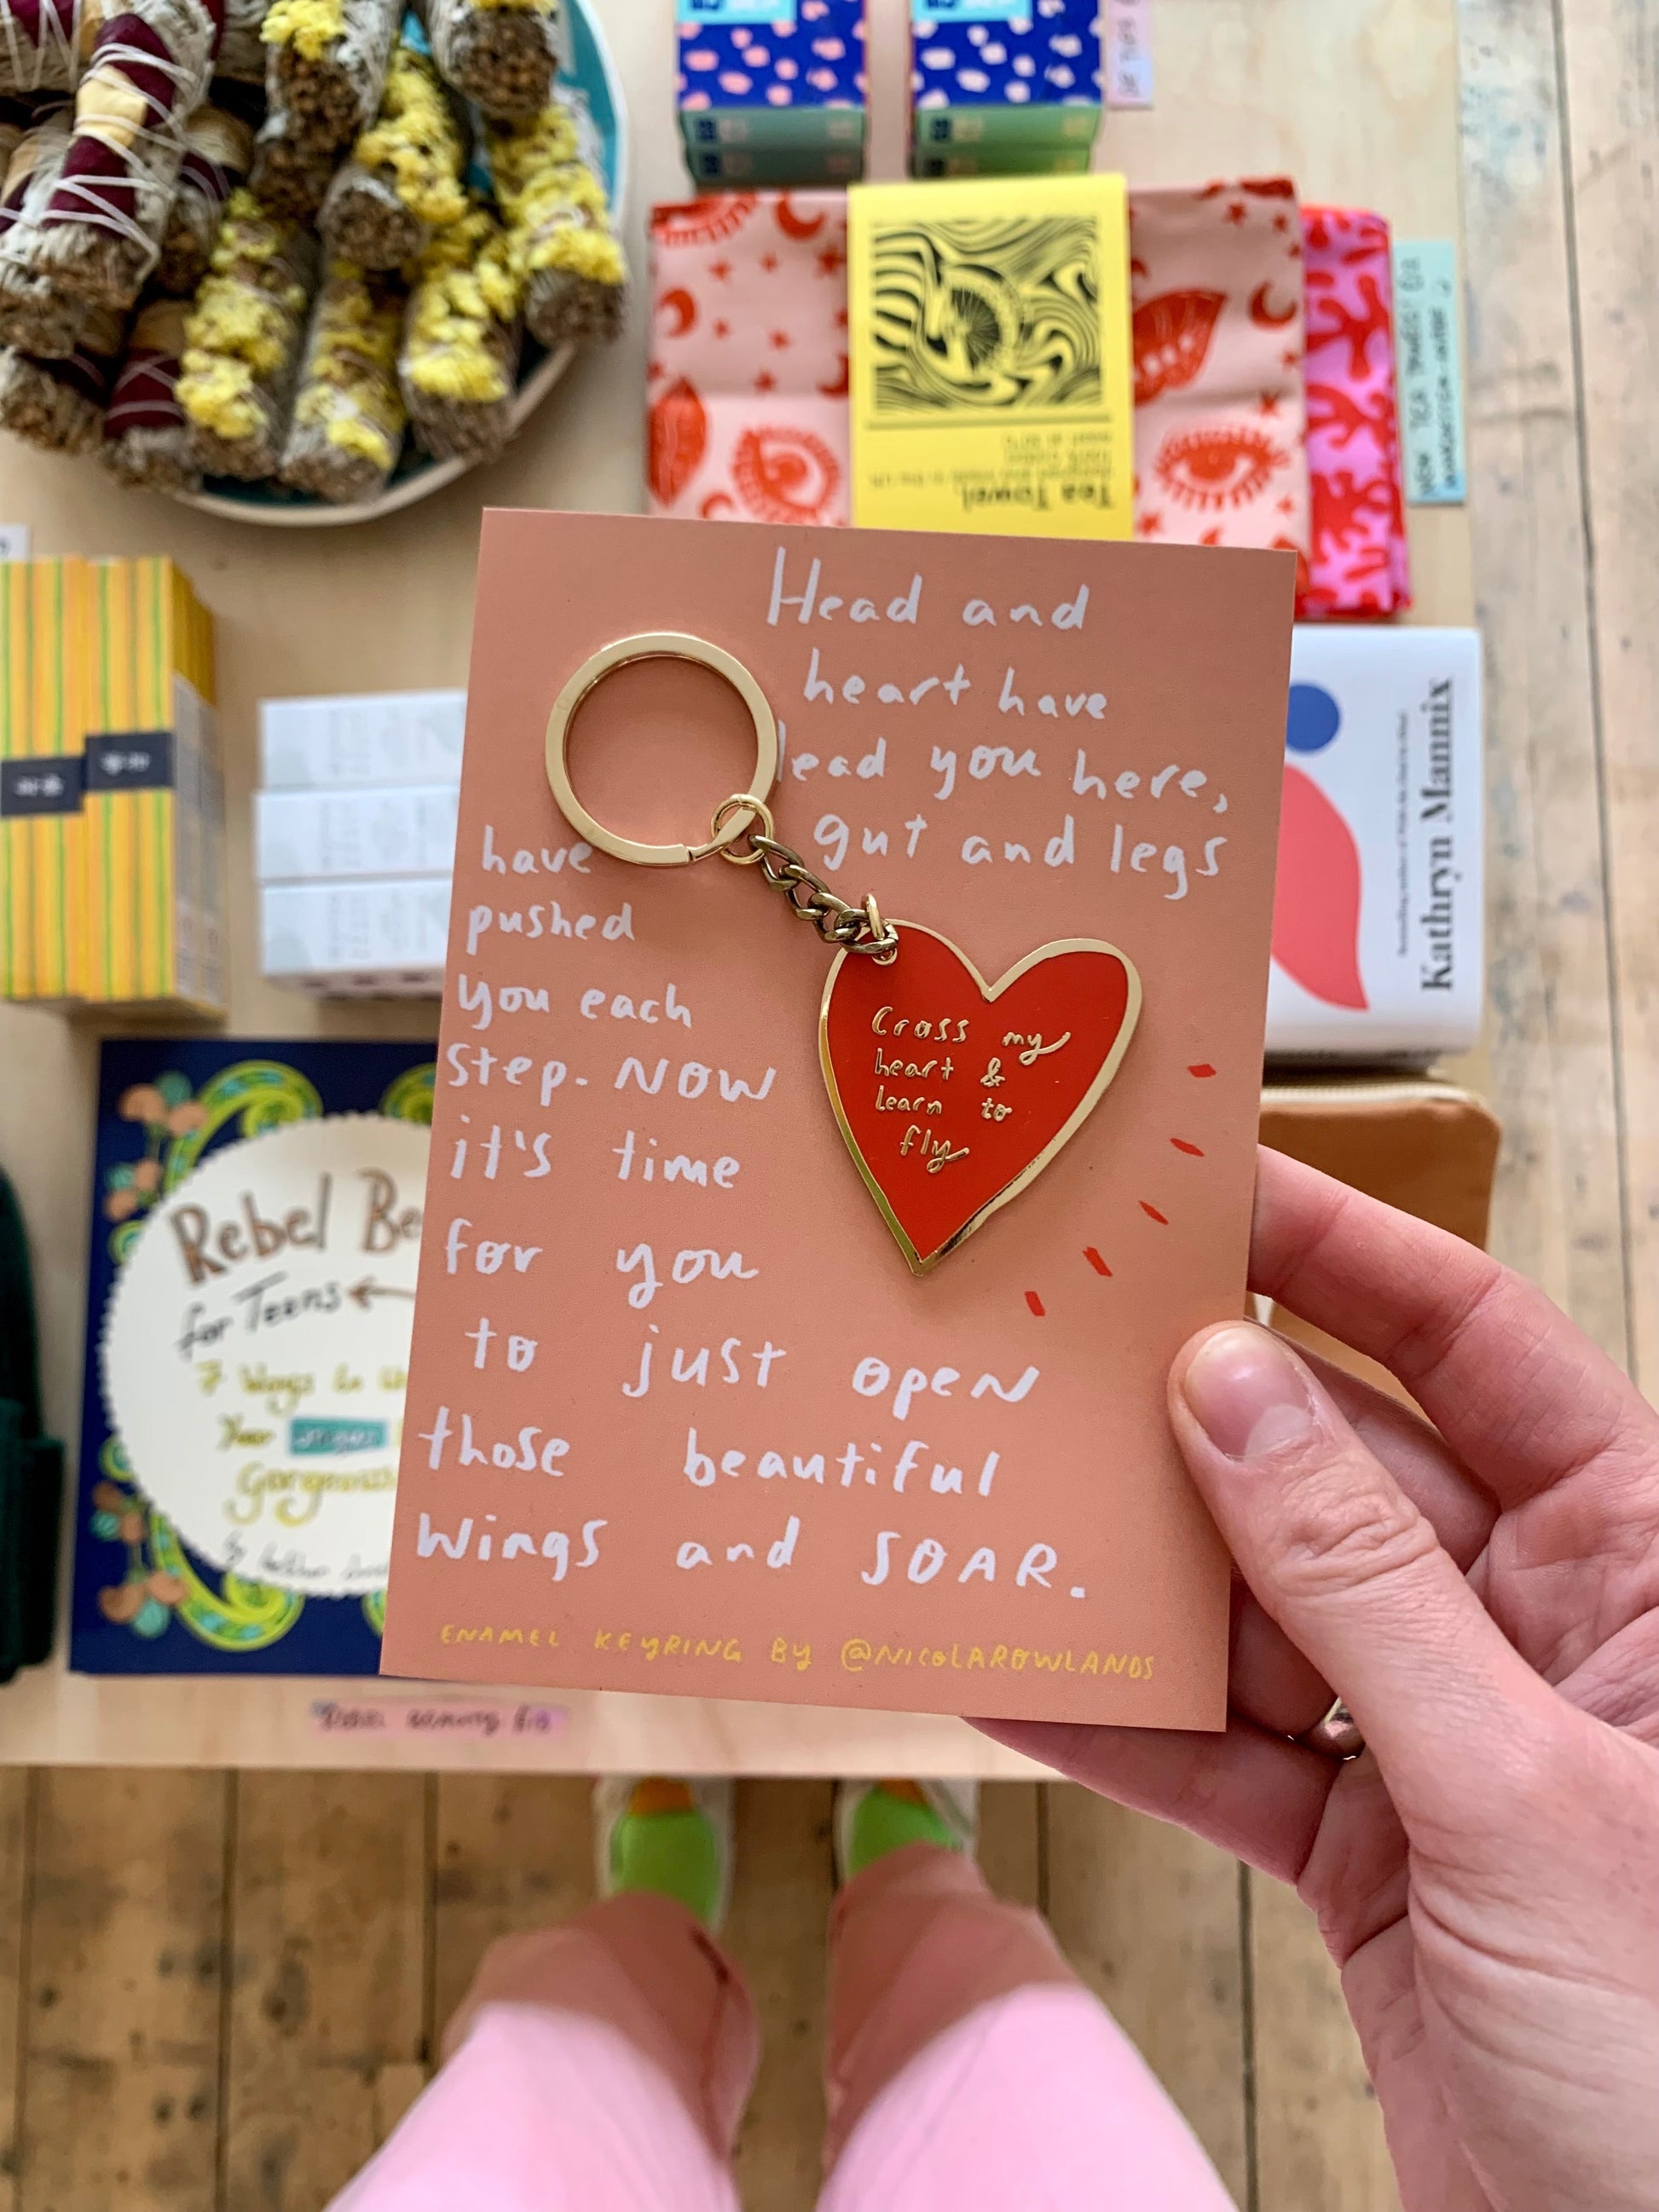 Head and
heart have
lead you here,
gut and legs
have
pushed
you each
step. NOW
it's time
for you
to just open
those beautiful
wings and SOAR.
ENAMEL KEYRING BY @NICOLAROWLANDS
Cross my
heart &
learn to
fly
Tea Towel
Kathryn Mannix
Rebel
for Teens
7 Ways
Your